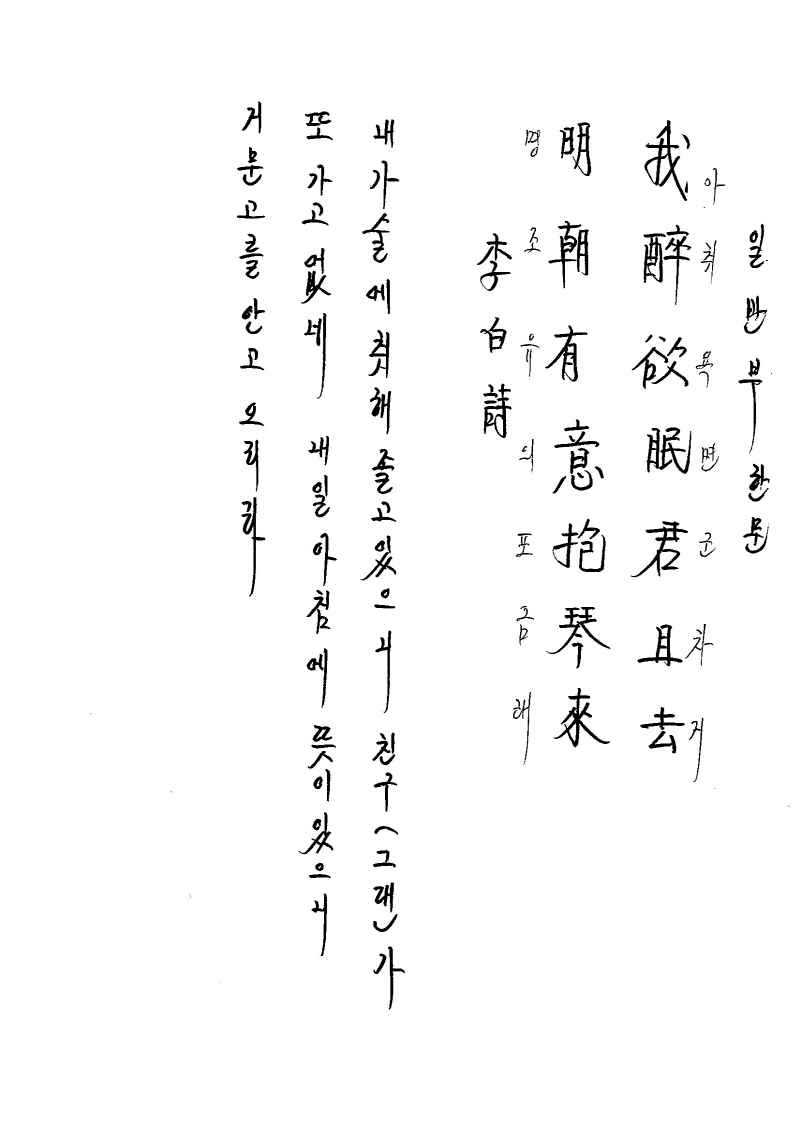 일반부 한문
我醉欲眠君且去
아취욕면군차거
明朝有意抱琴來
명조유의포금래
李白詩
내가 술에 취해 졸고있으니 친구(그대)가
또 가고 없네 내일 아침에 뜻이 있으니
거문고를 안고 오리라